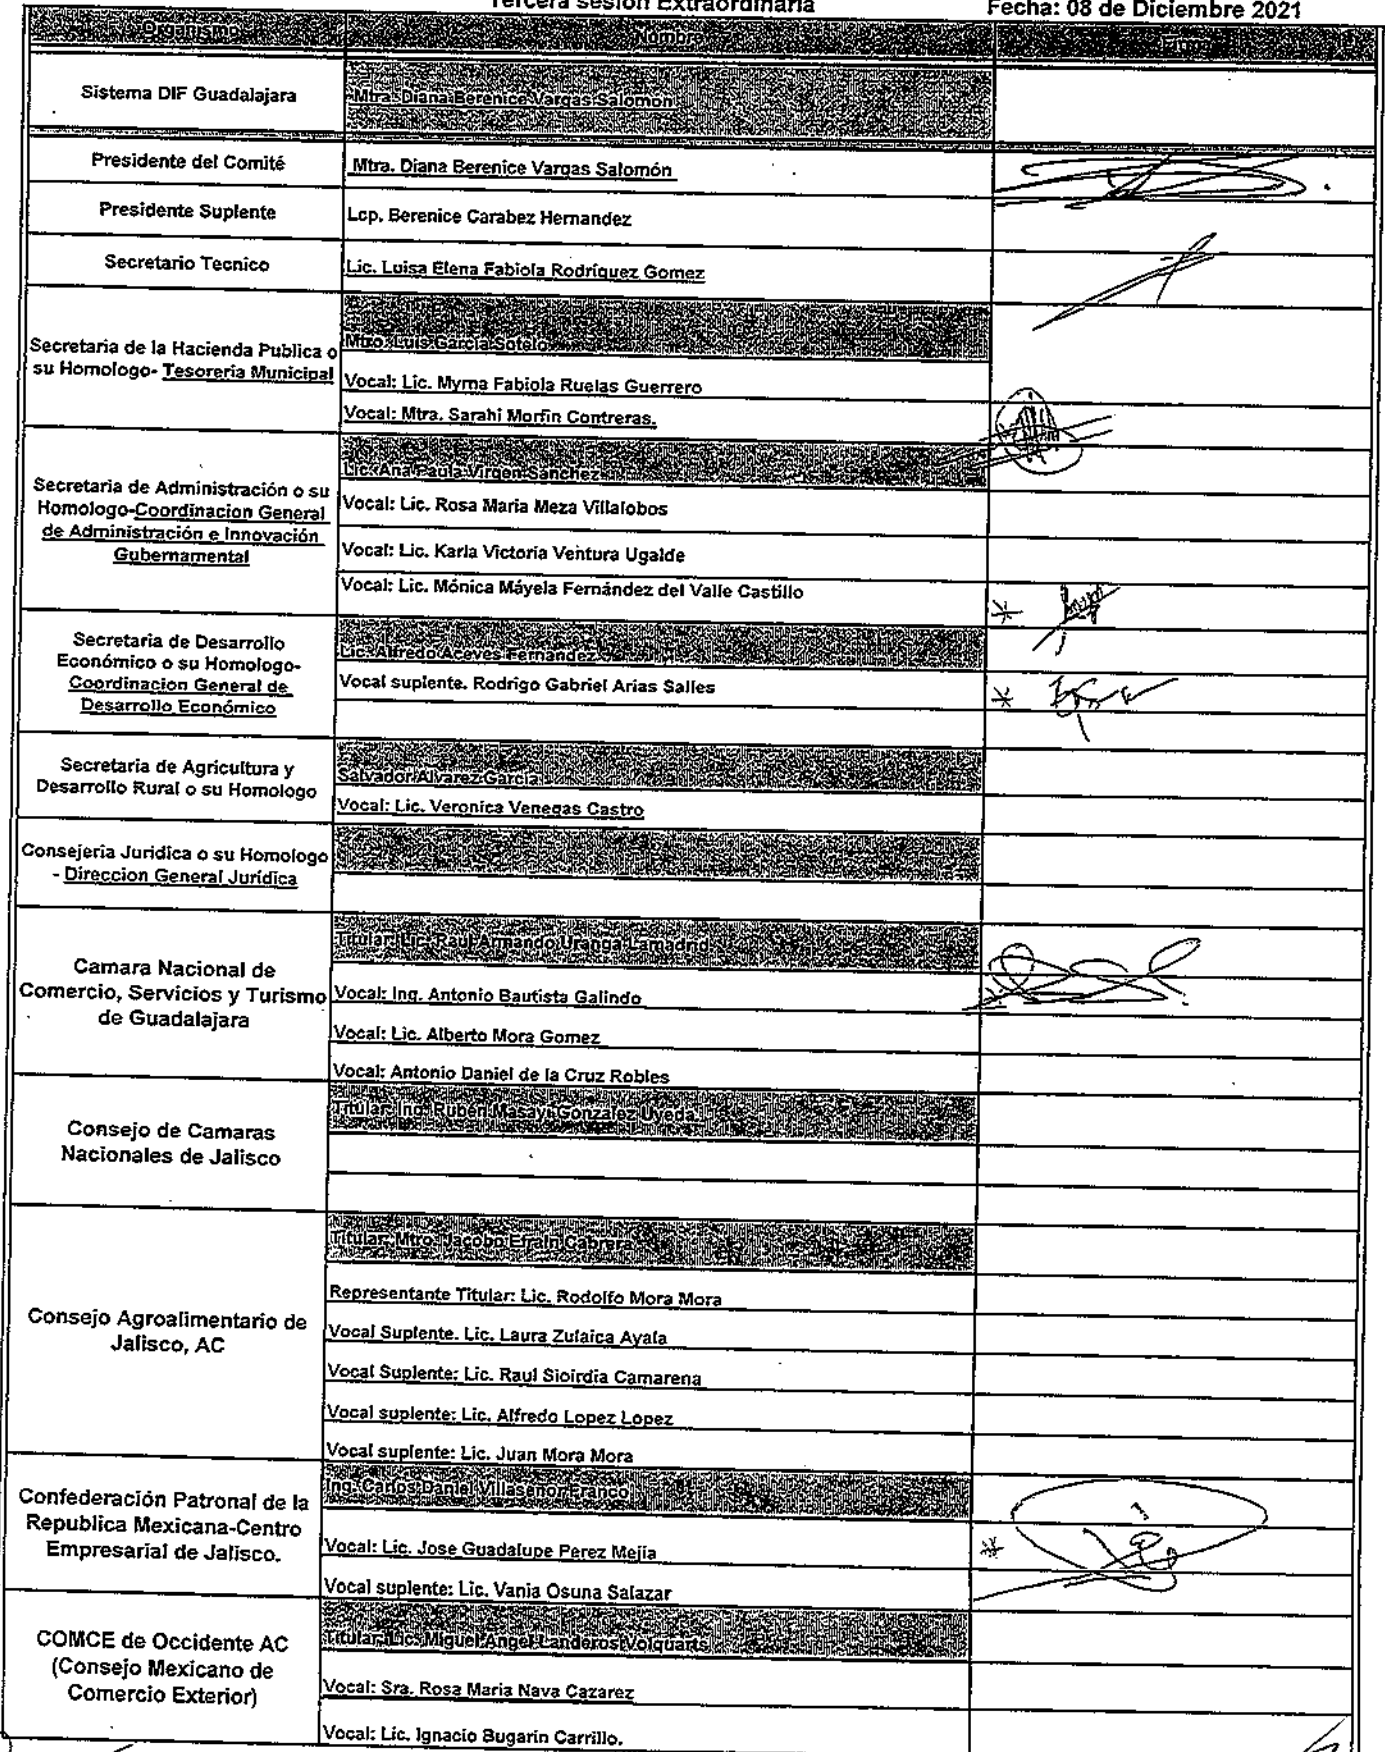 Tercera sesión Extraordinaria
Fecha: 08 de Diciembre 2021
Organismo
Nombre
Firma
Sistema DIF Guadalajara
Mtra. Diana Berenice Vargas Salomón
Presidente del Comité
Mtra. Diana Berenice Vargas Salomón
Presidente Suplente
Lcp. Berenice Carabez Hernandez
Secretario Tecnico
Lic. Luisa Elena Fabiola Rodríguez Gomez
Secretaria de la Hacienda Publica o
su Homologo- Tesoreria Municipal
Mtro. Luis García Sotelo
Vocal: Lic. Myrna Fabiola Ruelas Guerrero
Vocal: Mtra. Sarahi Morfin Contreras.
Secretaria de Administración o su
Homologo-Coordinacion General
de Administración e Innovación
Gubernamental
Lic. Ana Paula Virgen Sánchez
Vocal: Lic. Rosa Maria Meza Villalobos
Vocal: Lic. Karla Victoria Ventura Ugalde
Vocal: Lic. Mónica Máyela Fernández del Valle Castillo
Secretaria de Desarrollo
Económico o su Homologo-
Coordinacion General de
Desarrollo Económico
Lic. Alfredo Aceves Fernández
Vocal suplente. Rodrigo Gabriel Arias Salles
Secretaria de Agricultura y
Desarrollo Rural o su Homologo
Salvador Alvarez García
Vocal: Lic. Veronica Venegas Castro
Consejeria Juridica o su Homologo
- Direccion General Jurídica
Camara Nacional de
Comercio, Servicios y Turismo
de Guadalajara
Titular: Lic. Raul Armando Uranga Lamadrid
Vocal: Ing. Antonio Bautista Galindo
Vocal: Lic. Alberto Mora Gomez
Vocal: Antonio Daniel de la Cruz Robles
Consejo de Camaras
Nacionales de Jalisco
Titular: Ing. Rubén Masayi Gonzalez Uyeda.
Consejo Agroalimentario de
Jalisco, AC
Titular: Mtro. Jacobo Efraín Cabrera
Representante Titular: Lic. Rodolfo Mora Mora
Vocal Suplente. Lic. Laura Zulaica Ayala
Vocal Suplente: Lic. Raul Sioirdia Camarena
Vocal suplente: Lic. Alfredo Lopez Lopez
Vocal suplente: Lic. Juan Mora Mora
Confederación Patronal de la
Republica Mexicana-Centro
Empresarial de Jalisco.
Ing. Carlos Daniel Villaseñor Franco
Vocal: Lic. Jose Guadalupe Perez Mejia
Vocal suplente: Lic. Vania Osuna Salazar
COMCE de Occidente AC
(Consejo Mexicano de
Comercio Exterior)
Titular: Lic. Miguel Ángel Landeros Volquarts
Vocal: Sra. Rosa Maria Nava Cazarez
Vocal: Lic. Ignacio Bugarin Carrillo.